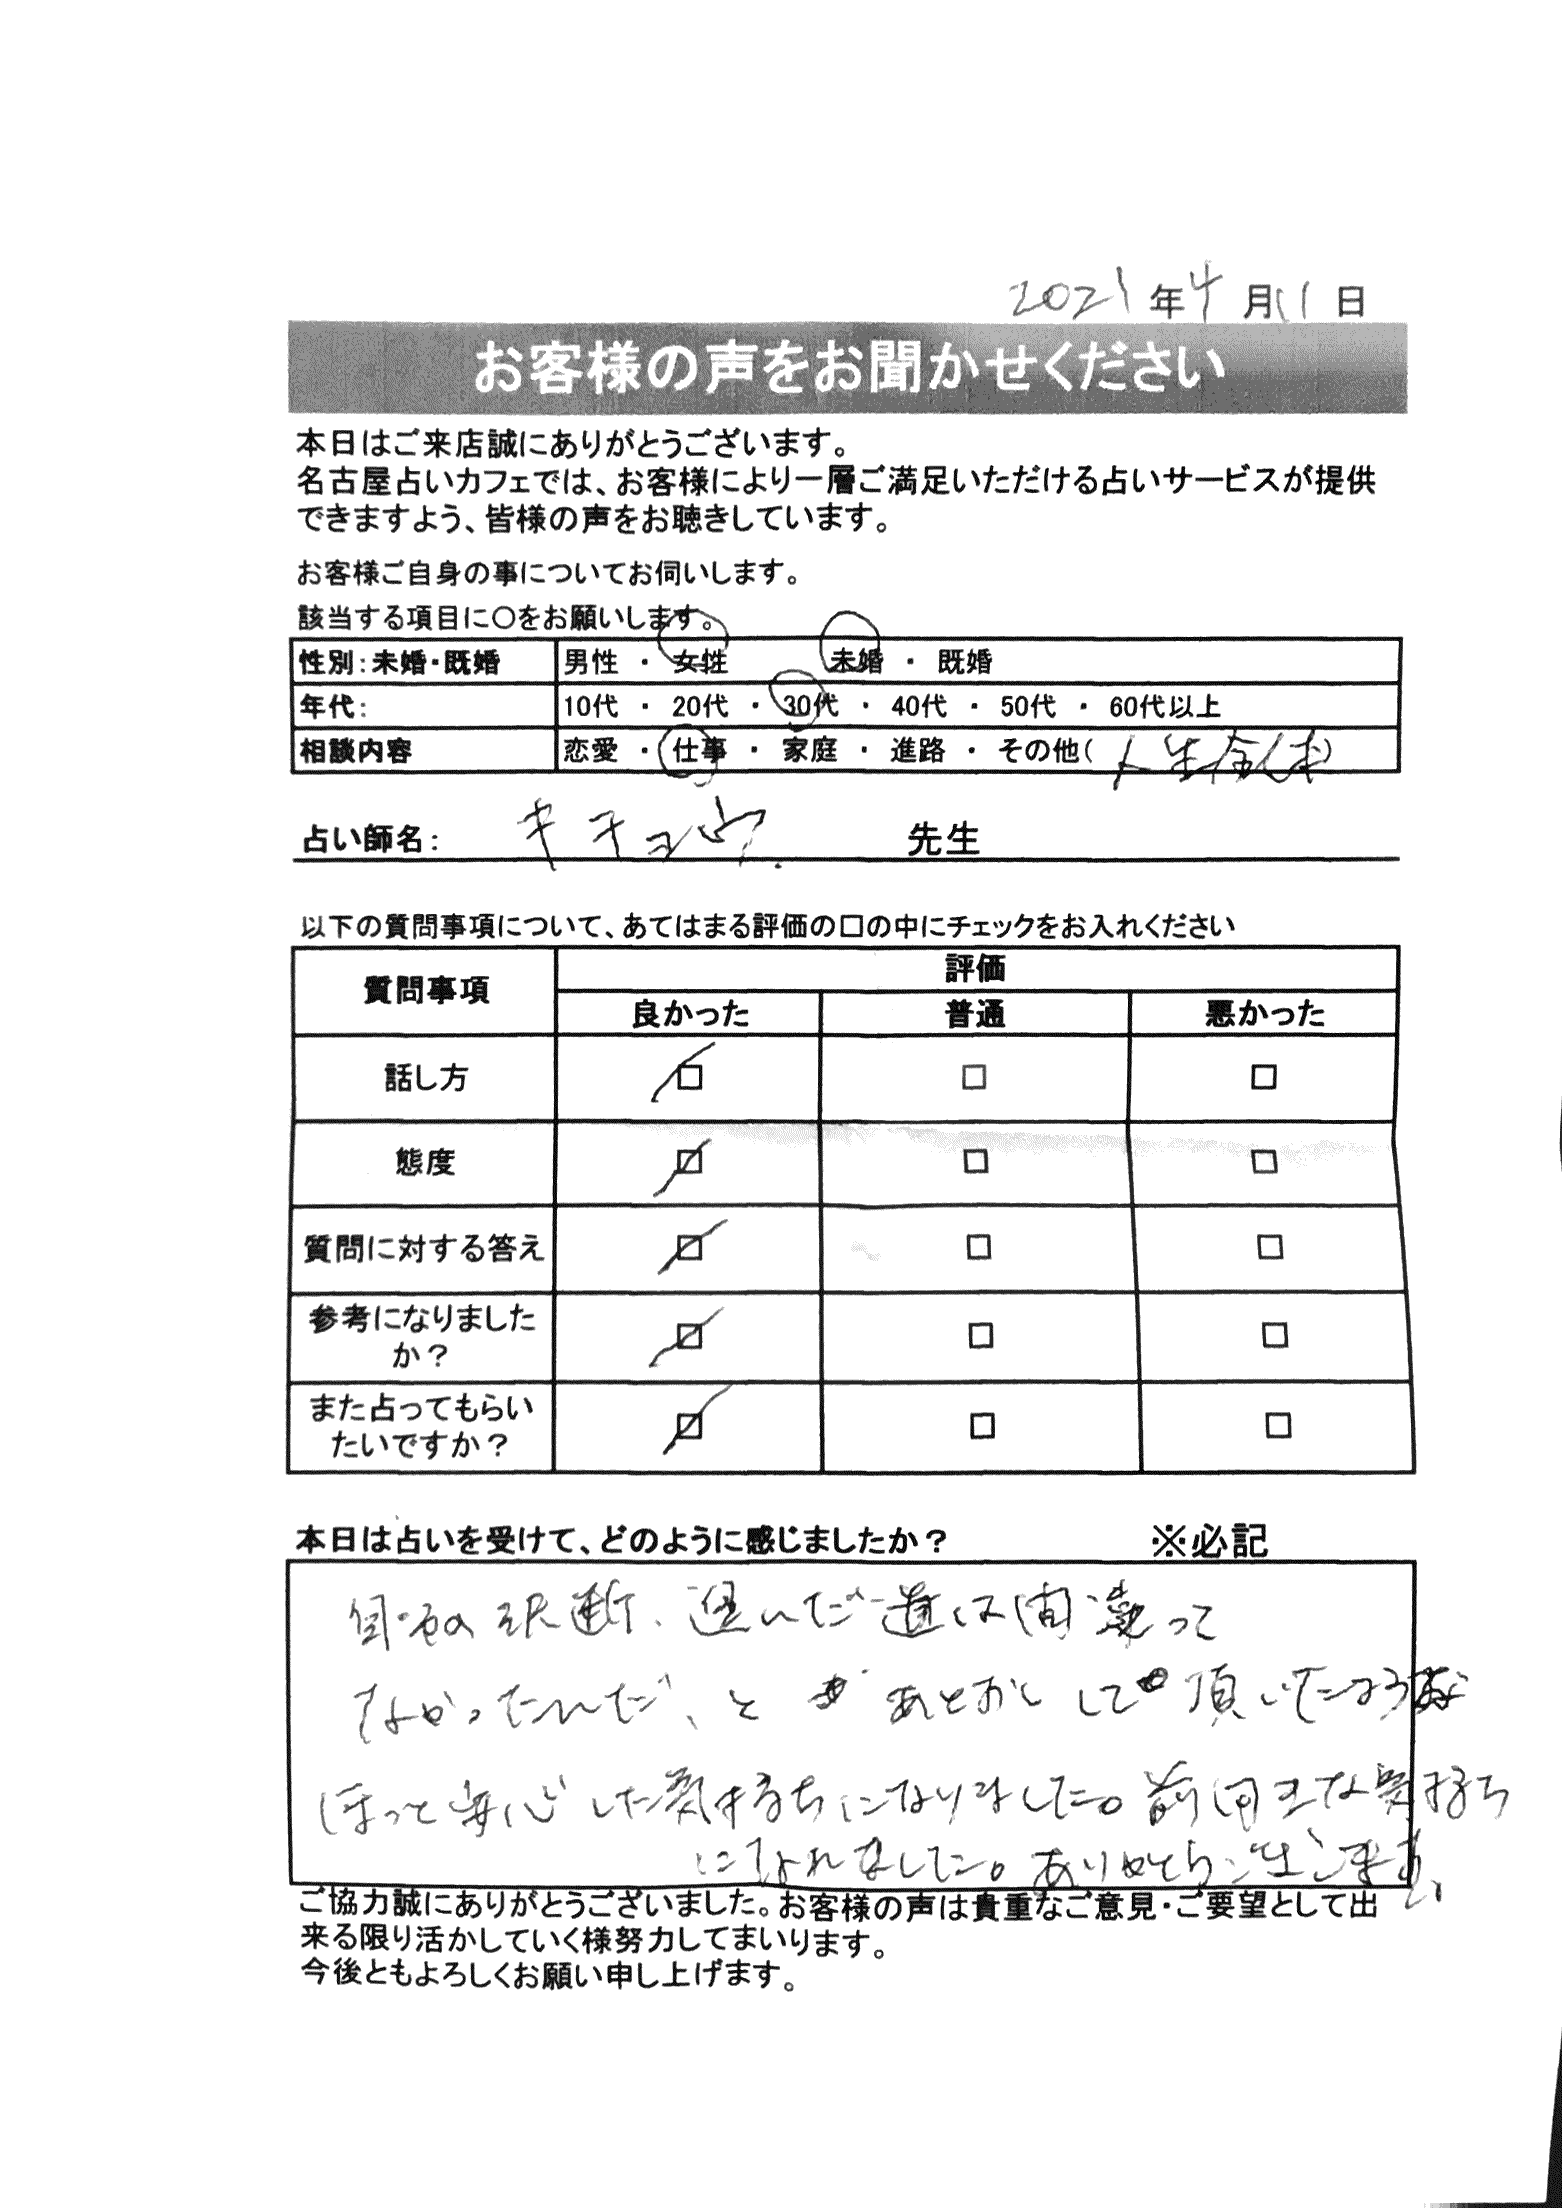 2021年4月11日
お客様の声をお聞かせください
本日はご来店誠にありがとうございます。
名古屋占いカフェでは、お客様により一層ご満足いただける占いサービスが提供
できますよう、皆様の声をお聴きしています。
お客様ご自身の事についてお伺いします。
該当する項目に○をお願いします。
性別:未婚・既婚 男性 ・ 女性 未婚 ・ 既婚
年代: 10代 ・ 20代 ・ 30代 ・ 40代 ・ 50代 ・ 60代以上
相談内容 恋愛 ・ 仕事 ・ 家庭 ・ 進路 ・ その他(人生全体)
占い師名: キキョウ 先生
以下の質問事項について、あてはまる評価の□の中にチェックをお入れください
質問事項 評価
良かった 普通 悪かった
話し方 □ □ □
態度 □ □ □
質問に対する答え □ □ □
参考になりました
か? □ □ □
また占ってもらい
たいですか? □ □ □
本日は占いを受けて、どのように感じましたか? ※必記
自分の決断、選んだ道は間違って
なかったんだ、と あとおしして頂いたような
ほっと安心した気持ちになりました。前向きな気持ち
になれました。ありがとうございます。
ご協力誠にありがとうございました。お客様の声は貴重なご意見・ご要望として出
来る限り活かしていく様努力してまいります。
今後ともよろしくお願い申し上げます。